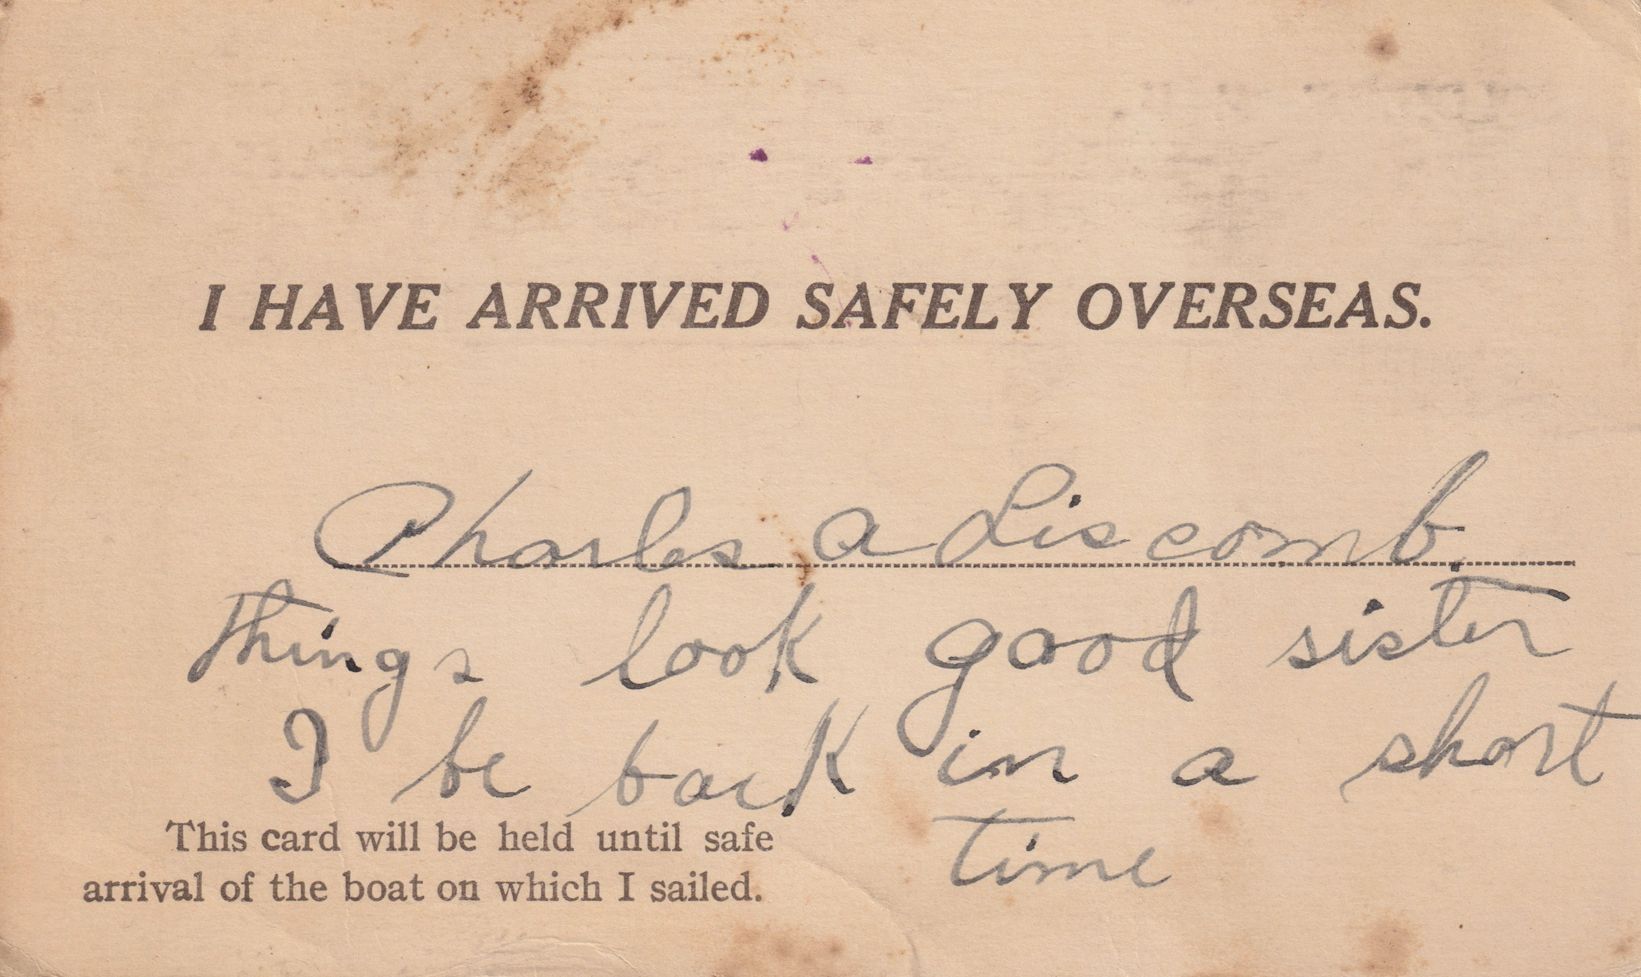 I HAVE ARRIVED SAFELY OVERSEAS.
Charles a Liscomb.
things look good sister
I be back in a short
time
This card will be held until safe
arrival of the boat on which I sailed.